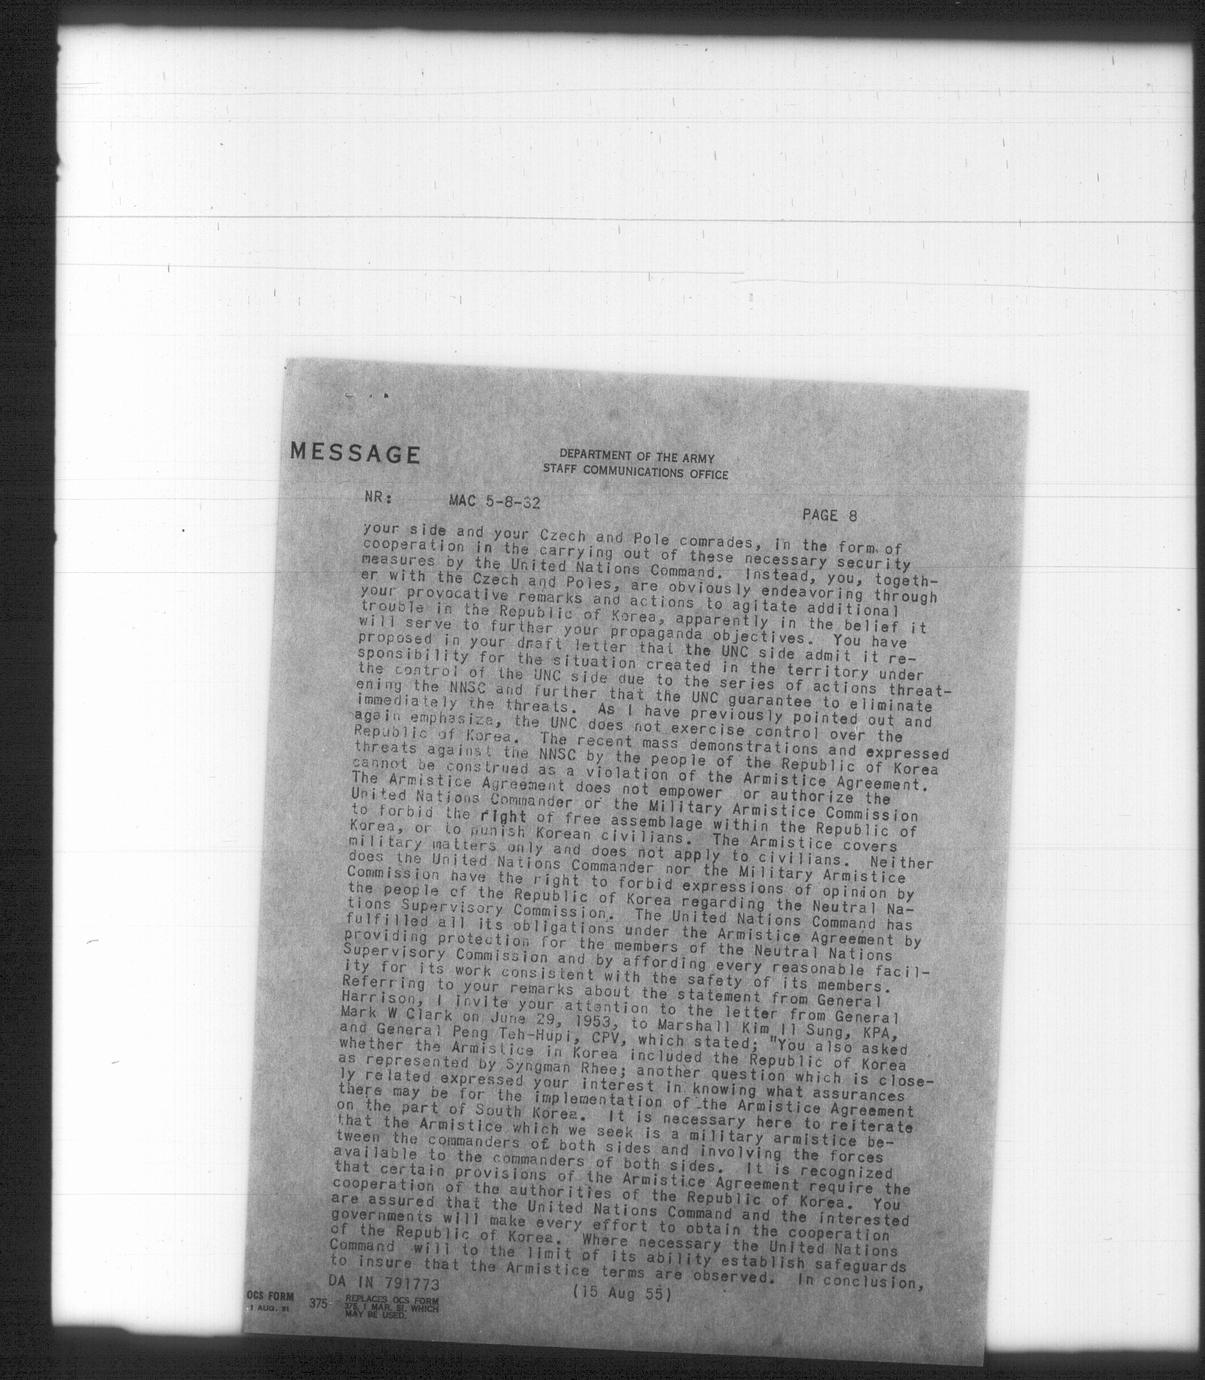 MESSAGE
DEPARTMENT OF THE ARMY
STAFF COMMUNICATIONS OFFICE
NR: MAC 5-8-32
PAGE 8
your side and your Czech and Pole comrades, in the form of
cooperation in the carrying out of these necessary security
measures by the United Nations Command. Instead, you, togeth-
er with the Czech and Poles, are obviously endeavoring through
your provocative remarks and actions to agitate additional
trouble in the Republic of Korea, apparently in the belief it
will serve to further your propaganda objectives. You have
proposed in your draft letter that the UNC side admit it re-
sponsibility for the situation created in the territory under
the control of the UNC side due to the series of actions threat-
ening the NNSC and further that the UNC guarantee to eliminate
immediately the threats. As I have previously pointed out and
again emphasize, the UNC does not exercise control over the
Republic of Korea. The recent mass demonstrations and expressed
threats against the NNSC by the people of the Republic of Korea
cannot be construed as a violation of the Armistice Agreement.
The Armistice Agreement does not empower or authorize the
United Nations Commander or the Military Armistice Commission
to forbid the right of free assemblage within the Republic of
Korea, or to punish Korean civilians. The Armistice covers
military matters only and does not apply to civilians. Neither
does the United Nations Commander nor the Military Armistice
Commission have the right to forbid expressions of opinion by
the people of the Republic of Korea regarding the Neutral Na-
tions Supervisory Commission. The United Nations Command has
fulfilled all its obligations under the Armistice Agreement by
providing protection for the members of the Neutral Nations
Supervisory Commission and by affording every reasonable facil-
ity for its work consistent with the safety of its members.
Referring to your remarks about the statement from General
Harrison, I invite your attention to the letter from General
Mark W Clark on June 29, 1953, to Marshall Kim Il Sung, KPA,
and General Peng Teh-Hupi, CPV, which stated; "You also asked
whether the Armistice in Korea included the Republic of Korea
as represented by Syngman Rhee; another question which is close-
ly related expressed your interest in knowing what assurances
there may be for the implementation of the Armistice Agreement
on the part of South Korea. It is necessary here to reiterate
that the Armistice which we seek is a military armistice be-
tween the commanders of both sides and involving the forces
available to the commanders of both sides. It is recognized
that certain provisions of the Armistice Agreement require the
cooperation of the authorities of the Republic of Korea. You
are assured that the United Nations Command and the interested
governments will make every effort to obtain the cooperation
of the Republic of Korea. Where necessary the United Nations
Command will to the limit of its ability establish safeguards
to insure that the Armistice terms are observed. In conclusion,
DA IN 791773
(15 Aug 55)
OCS FORM
1 AUG. 51
375
REPLACES OCS FORM
375, 1 MAR. 51, WHICH
MAY BE USED.